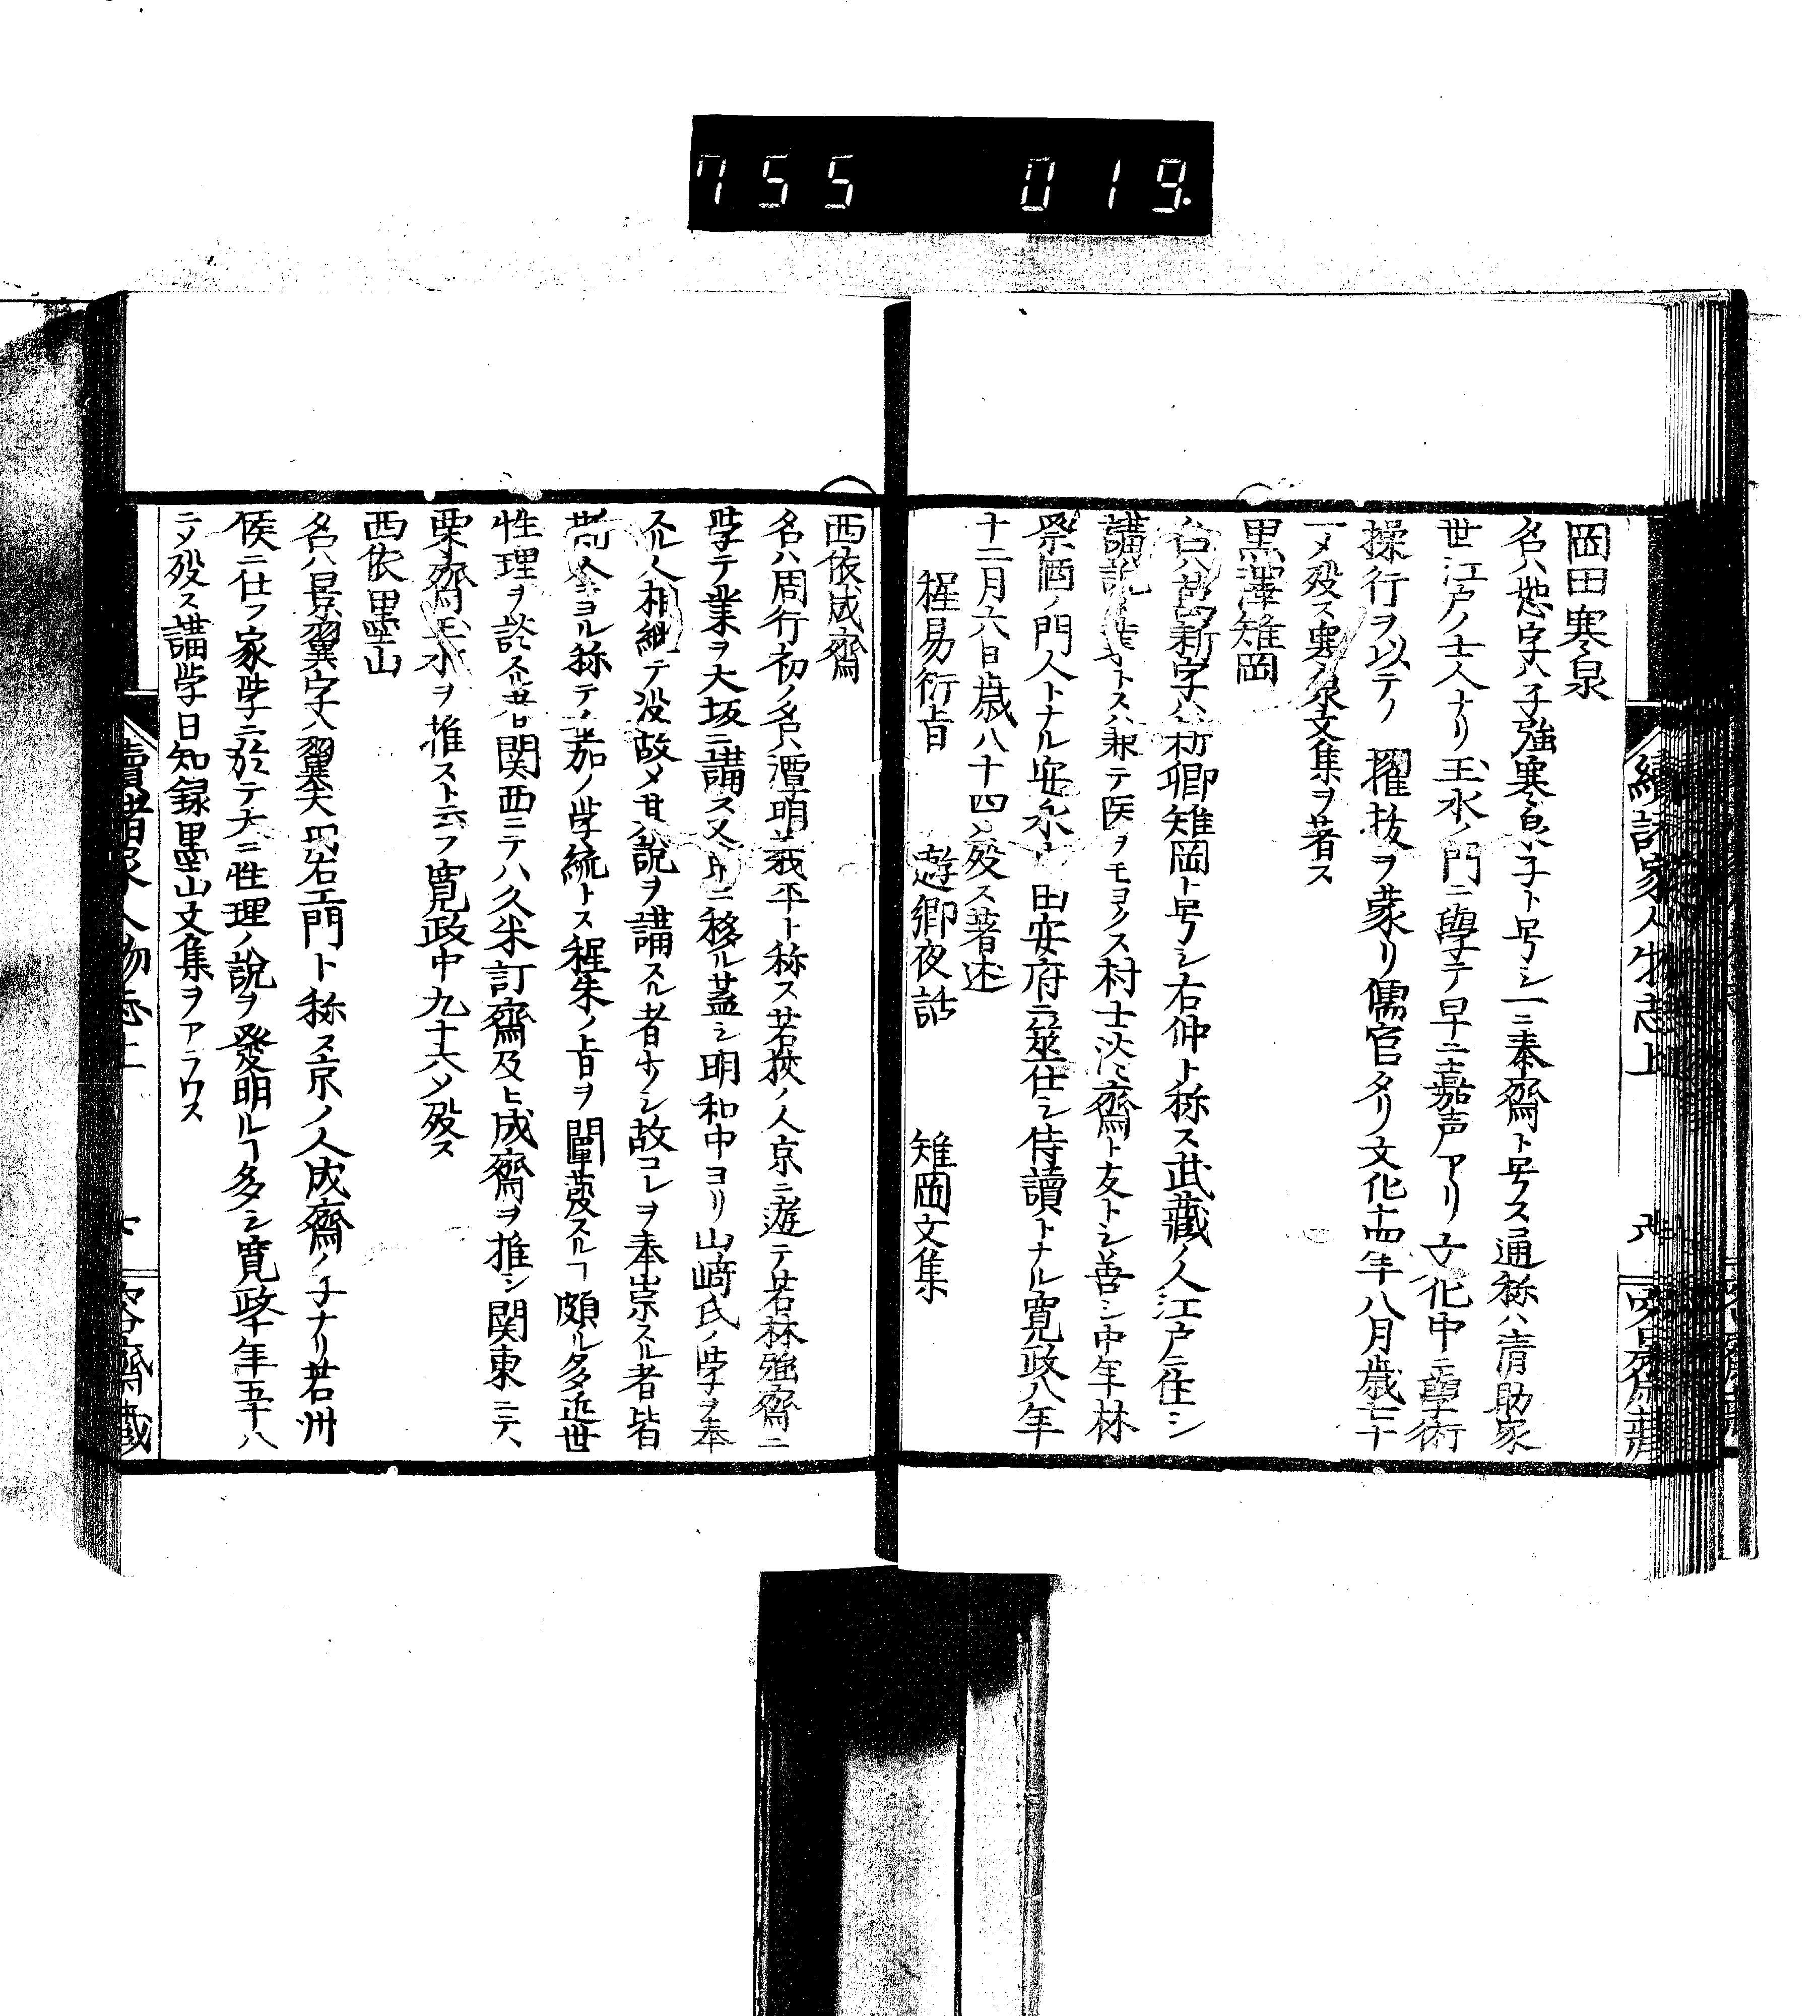 755 019.
續諸家人物志上
岡田寒泉
名ハ恕字ハ子強寒泉子ト号シ一ニ泰齋ト号ス通称ハ清助家
世江戸ノ士人ナリ玉水ノ門ニ學テ早ニ嘉声アリ文化中ニ學術
操行ヲ以テノ擢抜ヲ蒙リ儒官タリ文化十四年八月歳七十
一〆歿ス寒泉文集ヲ著ス
黒澤雉岡
名ハ萬新字ハ新卿雉岡ト号シ右仲ト称ス武藏ノ人江戸ニ住シ
講説ヲ業トス兼テ医ヲモヨクス村士淡齋ト友トシ善シ中年林
祭酒ノ門人トナル安永中田安府ニ筮仕シ侍讀トナル寛政八年
十二月六日歳八十四〆歿ス著述
程易衍旨 遊郷夜話 雉岡文集
西依成齋
名ハ周行初ノ名ハ潭明義平ト称ス若狹ノ人京ニ遊テ若林強齋ニ
学テ業ヲ大坂ニ講ス又京ニ移ル蓋シ明和中ヨリ山﨑氏ノ学ヲ奉
スル人相継テ没故〆其説ヲ講スル者少シ故コレヲ奉崇スル者皆
ヨル称テノ嘉ノ学統トス程朱ノ旨ヲ闡發スルヿ頗ル多近世
性理ヲ談スル者関西ニテハ久米訂齋及ヒ成齋ヲ推シ関東ニテハ
栗齋玉水ヲ推スト云フ寛政中九十六〆歿ス
西依墨山
名ハ景翼字ハ翼夫丹右エ門ト称ス京ノ人成齋ノ子ナリ若州
侯ニ仕フ家学ニ於テ大ニ性理ノ説ヲ發明ルヿ多シ寛政十年五十八
ニ〆歿ス講学日知録墨山文集ヲアラワス
續諸家人物志上